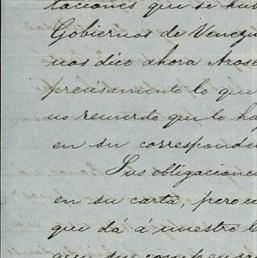 taciones que se hu
Gobiernos de Venezu
nos dice ahora Arose
precisamente lo que
no recuerdo que lo ha
en su corresponde
Sus obligacione
en su carta, pero e
que dá á nuestro l
que su compensa